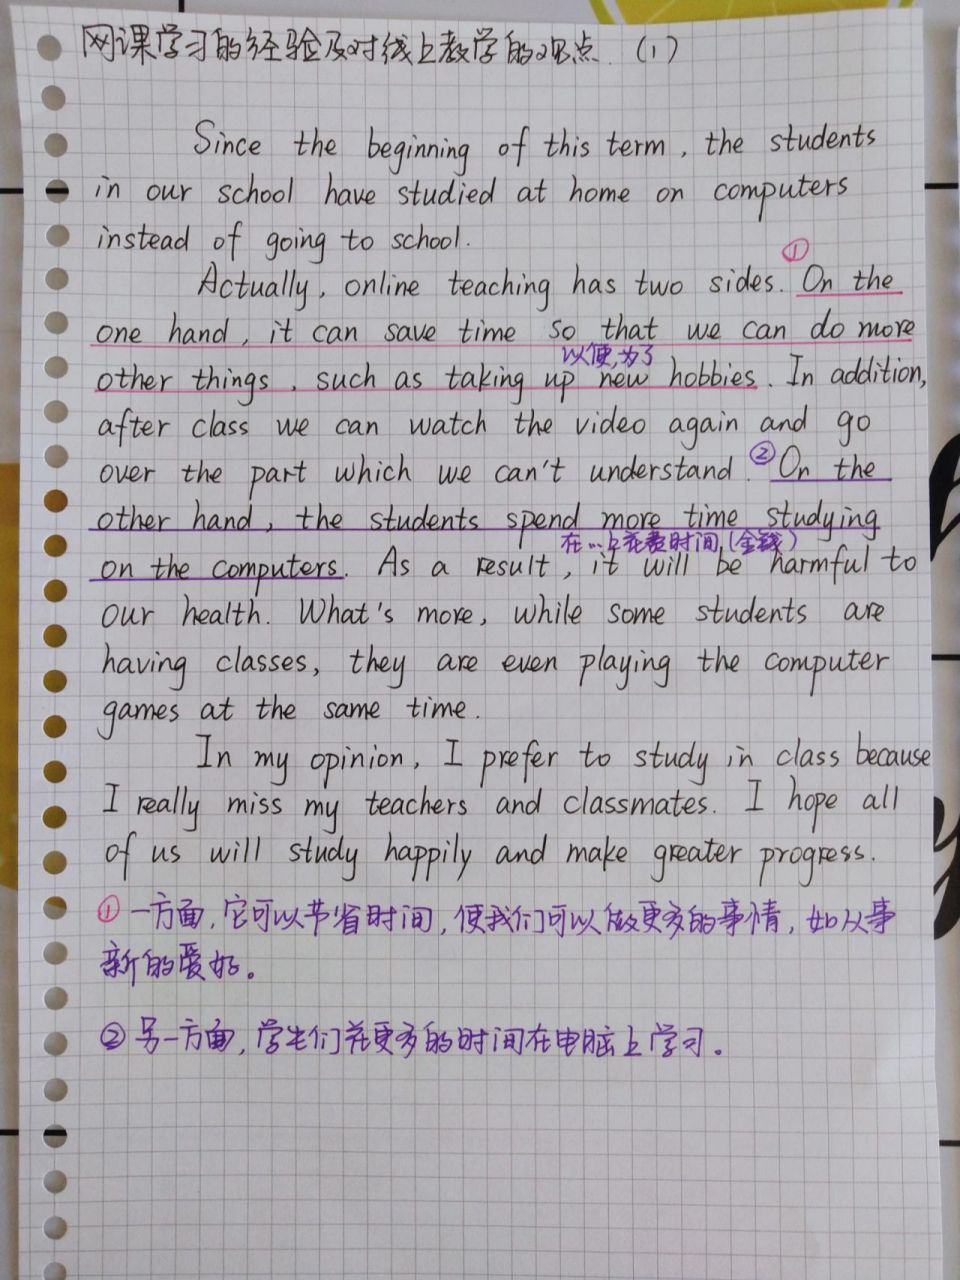 网课学习的经验及对线上教学的观点 (1)
Since the beginning of this term, the students
in our school have studied at home on computers
instead of going to school.
①
Actually, online teaching has two sides. On the
one hand, it can save time so that we can do more
以便,为了
other things, such as taking up new hobbies. In addition,
after class we can watch the video again and go
over the part which we can't understand. ② On the
other hand, the students spend more time studying
在…上花费时间(金钱)
on the computers. As a result, it will be harmful to
our health. What's more, while some students are
having classes, they are even playing the computer
games at the same time.
In my opinion, I prefer to study in class because
I really miss my teachers and classmates. I hope all
of us will study happily and make greater progress.
① 一方面,它可以节省时间,使我们可以做更多的事情,如从事
新的爱好。
② 另一方面,学生们花更多的时间在电脑上学习。